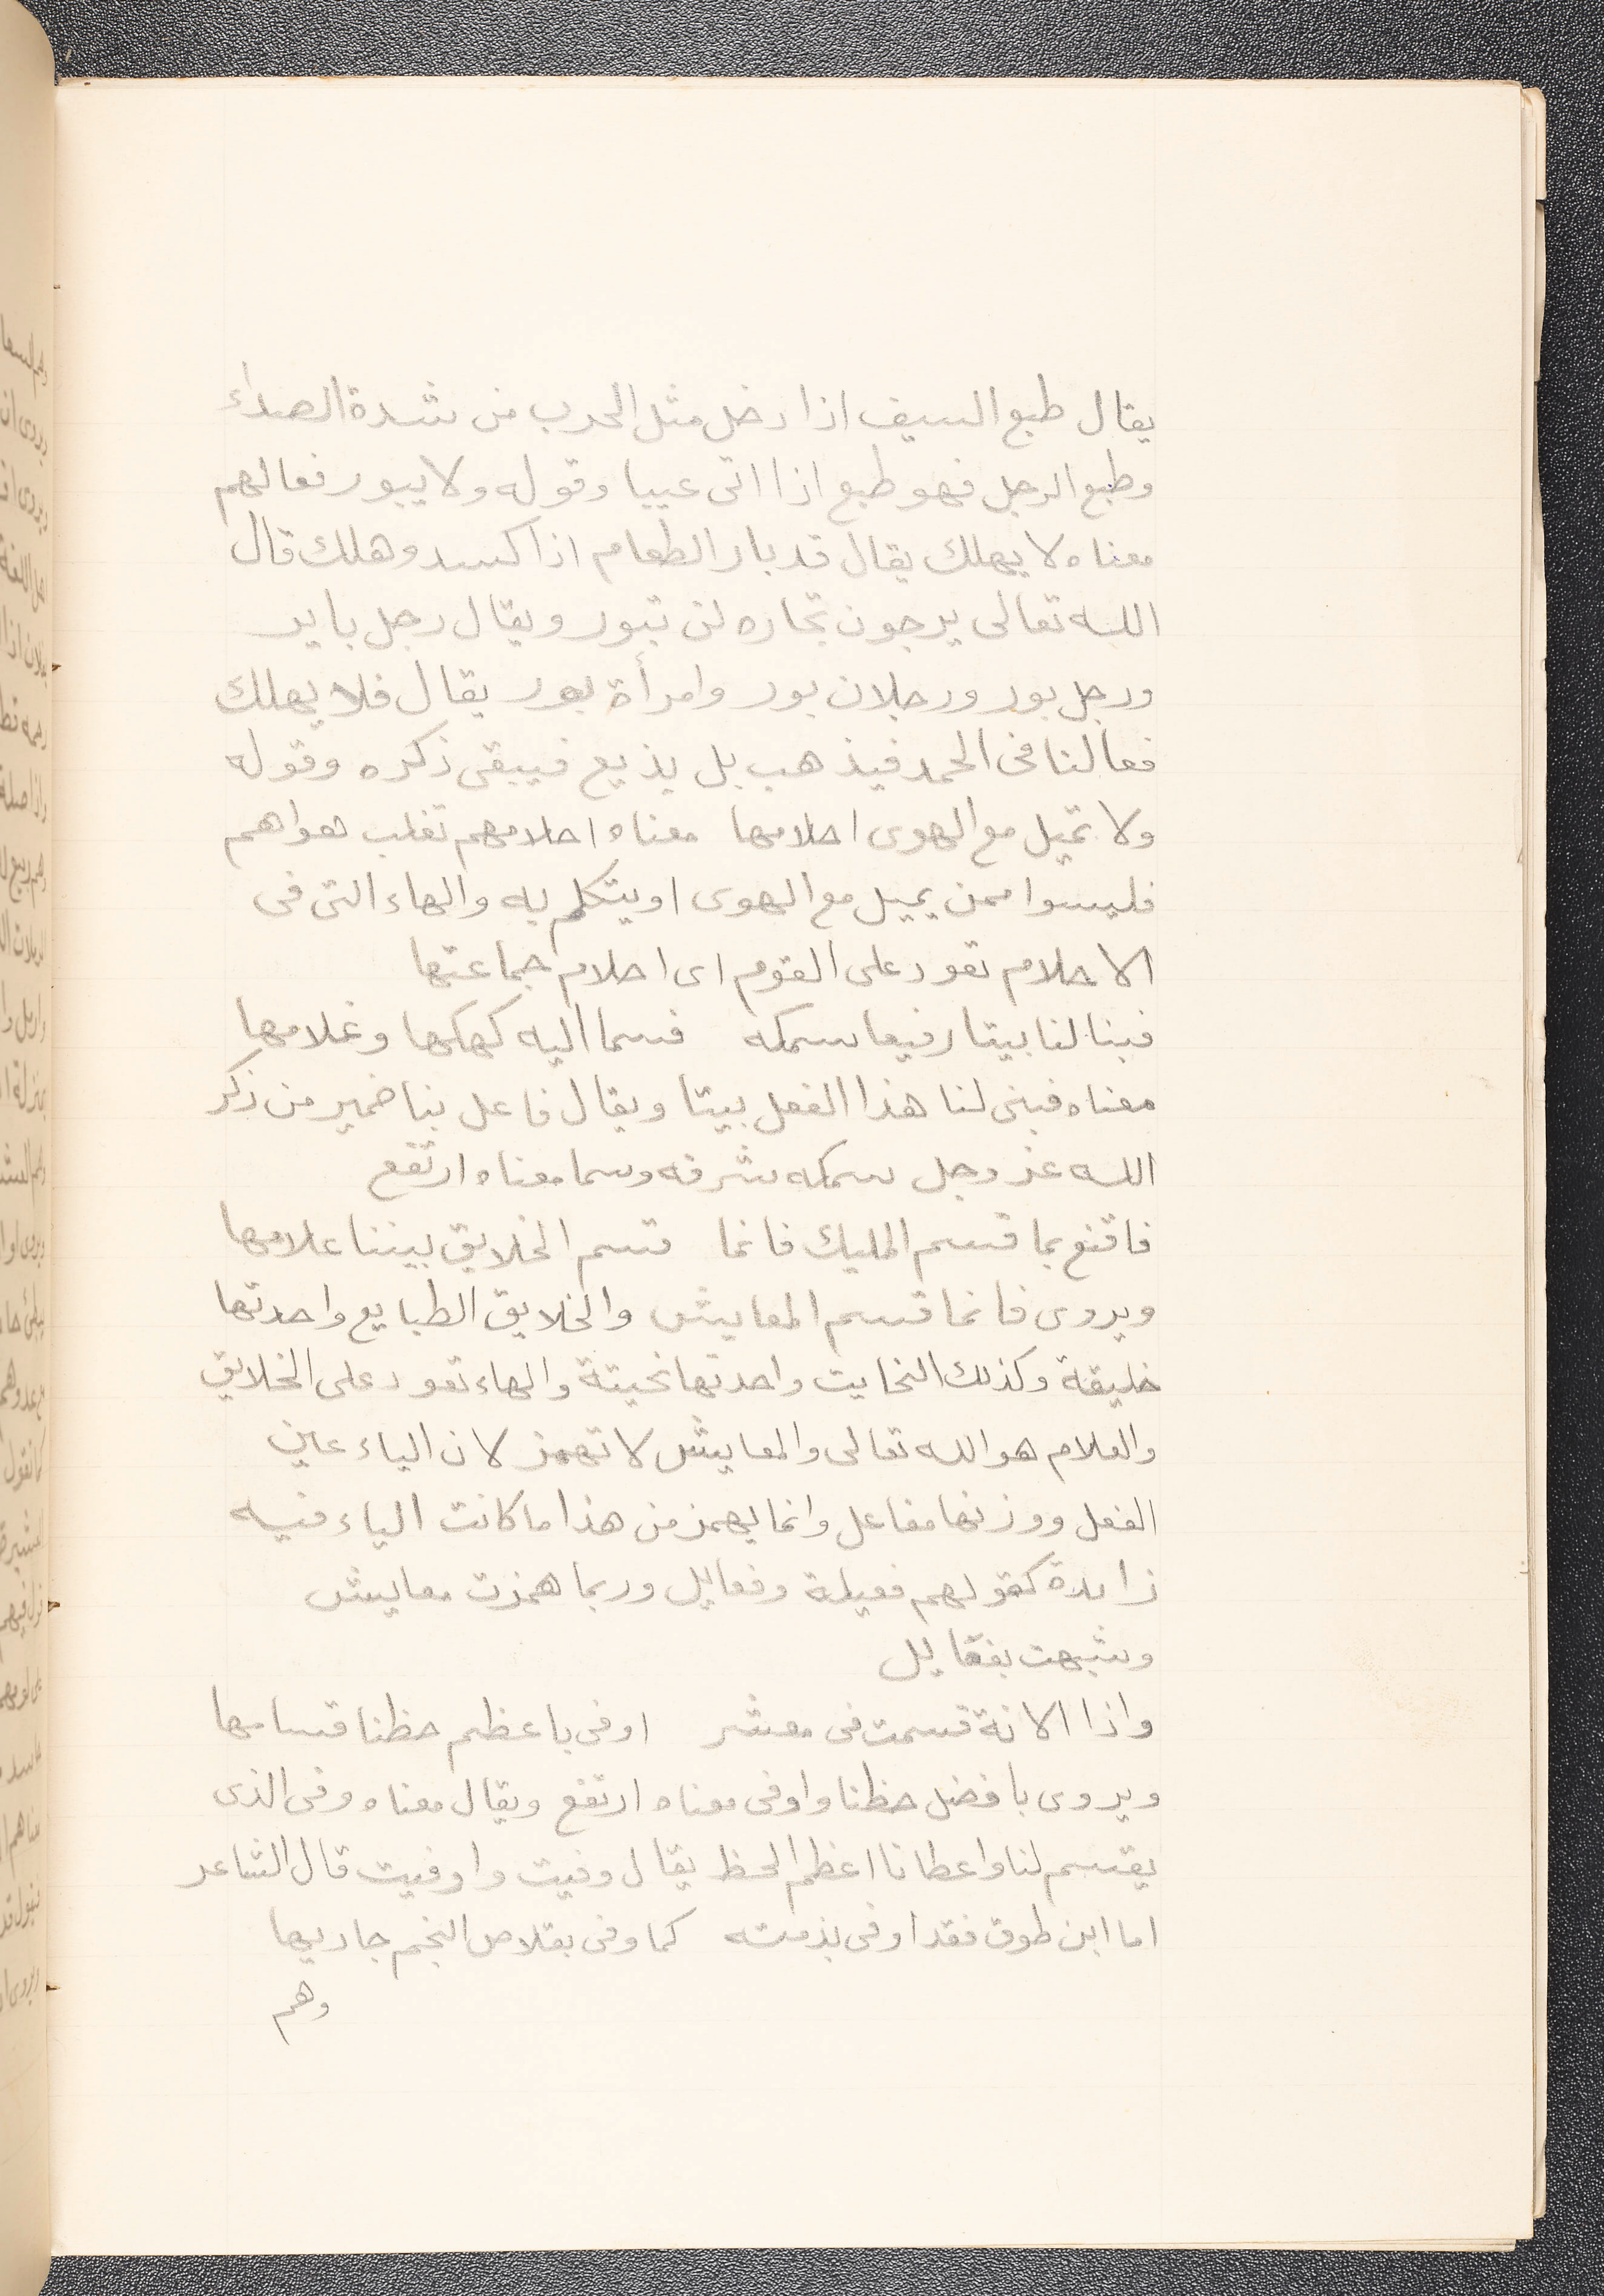 يقال طبع السيف اذا دخل مثل الجرب من شدة الصداء
وطبع الرجل فهو طبع اذا اتى عيبا وقوله ولا يبور فعالهم
معناه لا يهلك يقال قد بار الطعام اذا كسد وهلك قال
الله تعالى يرجون تجاره لن تبور ويقال رجل باير
ورجل بور ورجلان بور وامرأة بور يقال فلا يهلك
فعالنا فى الحمد فيذهب بل يذيع فيبقى ذكره وقوله
ولا تميل مع الهوى احلامها معناه احلامهم تغلب هواهم
فليسوا ممن يميل مع الهوى او يتكلم به والهاء التى فى
الاحلام تعود على القوم اى احلام جماعتها
فبنا لنا بيتا رفيعا سمكه فسما اليه كهلها وغلامها
معناه فبنى لنا هذا الفعل بيتا ويقال فاعل بنا ضمير من ذكر
الله عز وجل سمكه شرفه وسما معناه ارتفع
فاقنع بما قسم المليك فانما قسم الخلايق بيننا علامها
ويروى فانما قسم المعايش والخلايق الطبايع واحدتها
خليقة وكذلك النحايت واحدتها نحيتة والهاء تعود على الخلايق
والعلام هو الله تعالى والمعايش لا تهمز لان الياء عين
الفعل ووزنها مفاعل وانما يهمز من هذا ما كانت الياء فيه
زايدة كقولهم فعيلة وفعايل وربما همزت معايش
وشبهت بفعايل
واذا الامانة قسمت فى معشر اوفى باعظم حظنا قسامها
ويروى بافضل حظنا واوفى معناه ارتفع ويقال معناه وفى الذى
يقسم لنا واعطانا اعظم الحظ يقال وفيت واوفيت قال الشاعر
اما ابن طوق فقد اوفى بذمته كما وفى بقلاص النجم حاديها
وهم